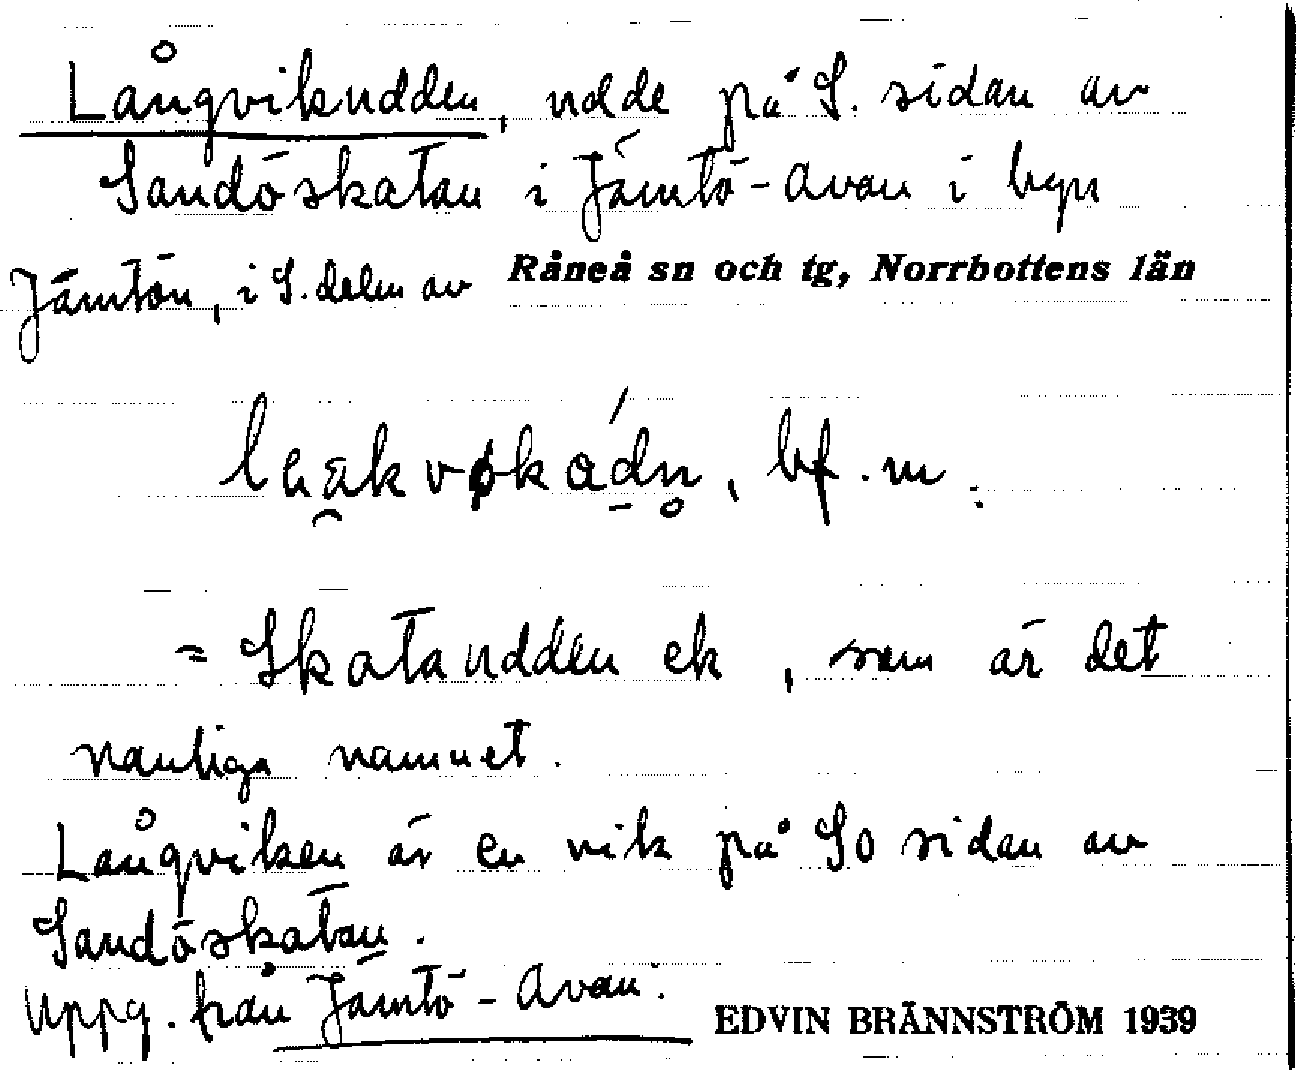 Långvikudden, udde på S. sidan av
Sandöskatan i Jämtö-Avan i byn
Jämtön, i S. delen av Råneå sn och tg, Norrbottens län
bf. m.
= Skatandden ek, som är det
vanliga namnet.
Långviken är en vik på SO sidan av
Sandöskatan.
Uppg. från Jämtö-Avan.
EDVIN BRÄNNSTRÖM 1939